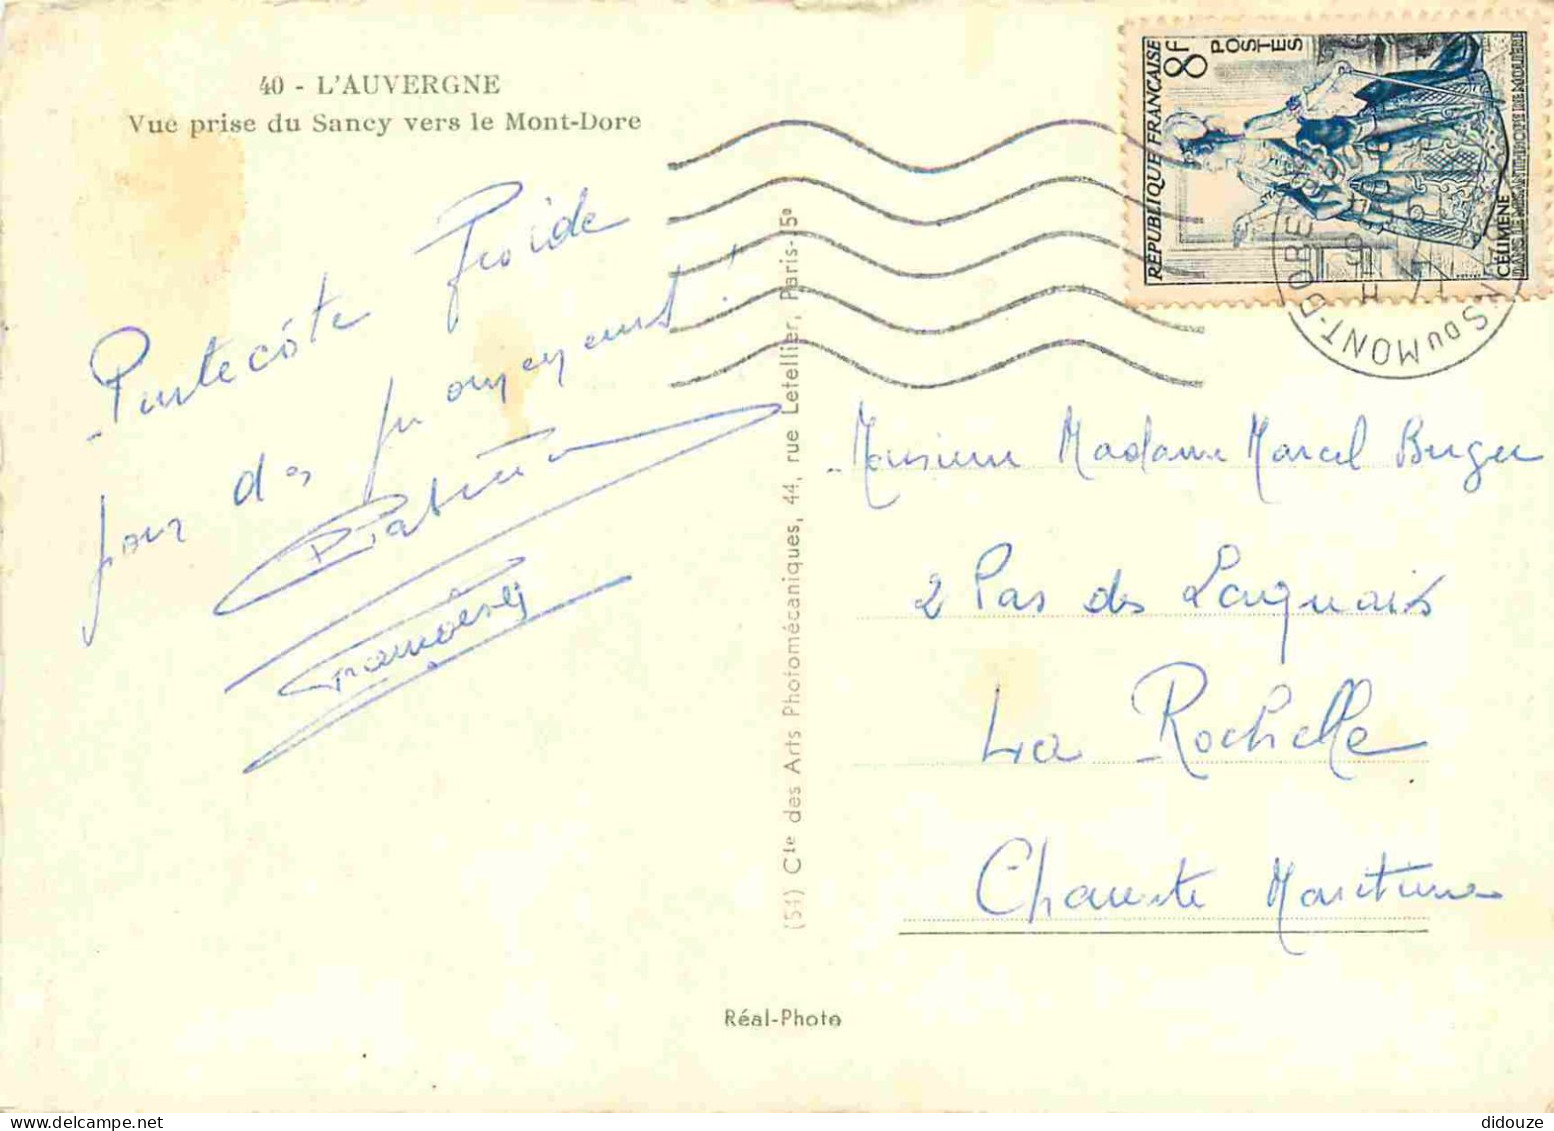 40 - L'AUVERGNE
Vue prise du Sancy vers le Mont-Dore
Pentecôte Froide
pour des
RÉPUBLIQUE FRANÇAISE
8f
POSTES
CÉLIMÈNE
DANS LE MISANTHROPE DE MOLIÈRE
DU MONT-DORE
(51) Cie des Arts Photomécaniques, 44, rue Letellier, Paris-15e
Monsieur Madame Marcel Berger
2 Pas des Laquais
La Rochelle
Charente Maritime
Réal-Photo
didouze